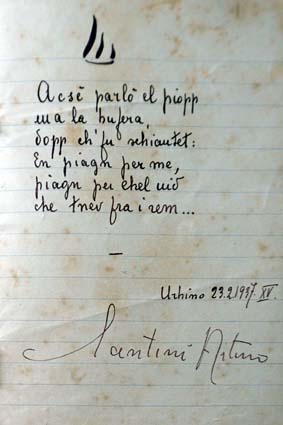 Acsè parlò el piopp
ma la bufera,
dopp ch'fu schiantet:
En piagn per me,
piagn per chel nid
che tnev fra i rem...
—
Urbino 23.2.1937. XV.
Santini Arturo